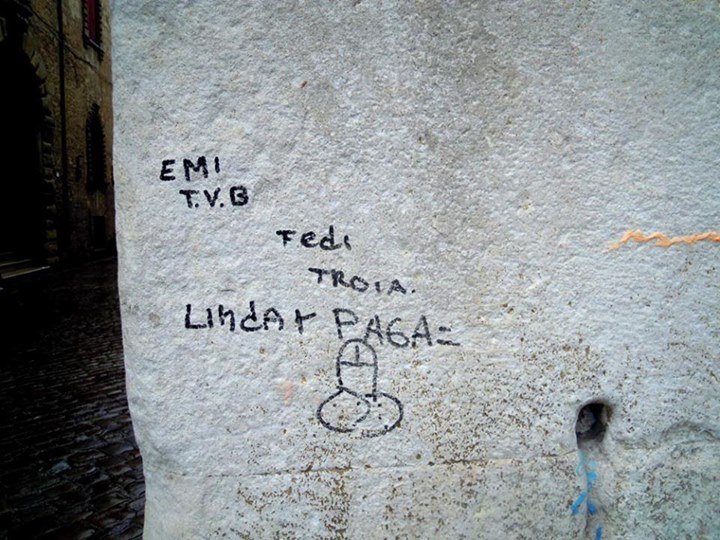 EMI
T.V.B
Fedi
TROIA.
LindA + PAGA=